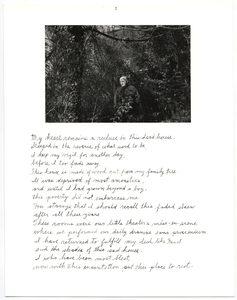 My heart remains a recluse in this dead house.
Steeped in the reverie of what used to be
I keep my vigil for another day,
before it too fade away.
This house is made of wood cut from my family tree
It was deprived of most amenities,
and until I had grown beyond a boy,
this poverty did not embarrass me.
How strange that I should recall this faded stain
after all these years
These rooms were our little theatre's mise-en-scene
where we performed our daily dramas
I have returned to fulfill my
with the shades of this sad house.
I who have been most blest,
now with this incantation put this place to rest.